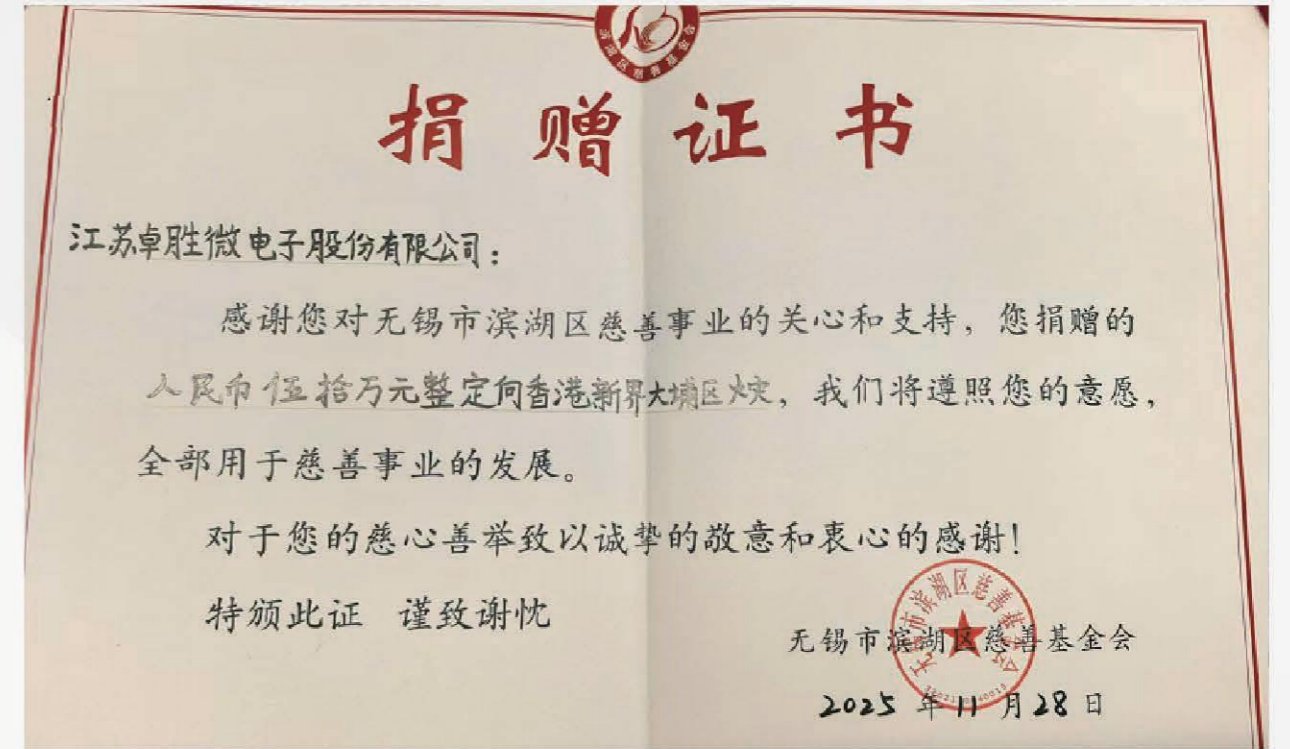 滨湖区慈善基金会
捐赠证书
江苏卓胜微电子股份有限公司：
感谢您对无锡市滨湖区慈善事业的关心和支持，您捐赠的
人民币伍拾万元整定向香港新界大埔区火灾，我们将遵照您的意愿，
全部用于慈善事业的发展。
对于您的慈心善举致以诚挚的敬意和衷心的感谢！
特颁此证 谨致谢忱
无锡市滨湖区慈善基金会
无锡市滨湖区慈善基金会
2025年11月28日